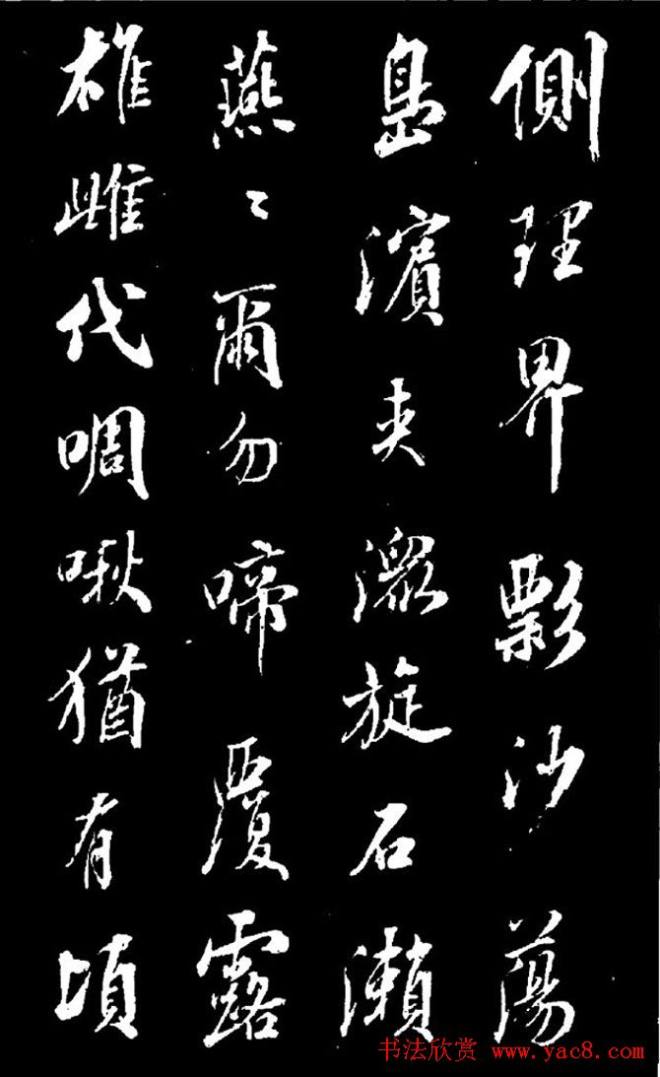 側理畀㯽沙蕩
島濱夾潀旋石瀨
燕〻爾勿啼覆露
雄雌代啁啾猶有頃
书法欣赏 www.yac8.com